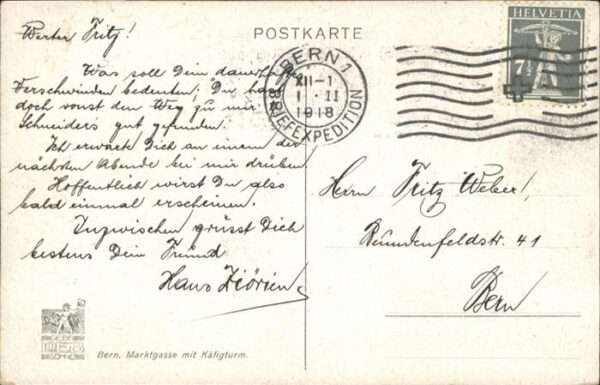 POSTKARTE
Werter Fritz!
Was soll Dein dauerhaft
Verschwinden bedeuten; Du hast
doch sonst den Weg zu mir
Schneiders gut gefunden.
Ich erwarte Dich an einem der
nächsten Abende bei mir drüben
Hoffentlich wirst Du also
bald einmal erscheinen.
Inzwischen grüsst Dich
bestens Dein Freund
Hans
BERN 1
XII-1
1. II
1918
BRIEFEXPEDITION
HELVETIA
7½
Herrn Fritz Weber,
41
Bern
Bern, Marktgasse mit Käfigturm.